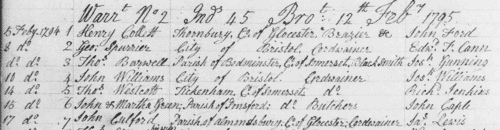 Warrt. No 2 Ind 45 Bro: 12th Feby 1795
5 Feby. 1794 1 Henry Collett Thornbury, C. of Glocester Brazier & John Ford
8 do 2 Geo: Spurrier City of Bristol Cordwainer Edwd. T. Cann
do do 3 Thos. Barwell Parish of Bedminster, C. of Somerset, Blacksmith Jos: Gunning
10 do 4 John Williams City of Bristol Cordwainer Jos: Williams
14 do 5 Thos. Westcott Tickenham, C. of Somerset, do Richd. Jenkins
15 do 6 John & Martha Green; Parish of do Butchers John Caple
17 do 7 John Parish of Almondsbury C. of Glocester; Cordwainer Jas: Lewis